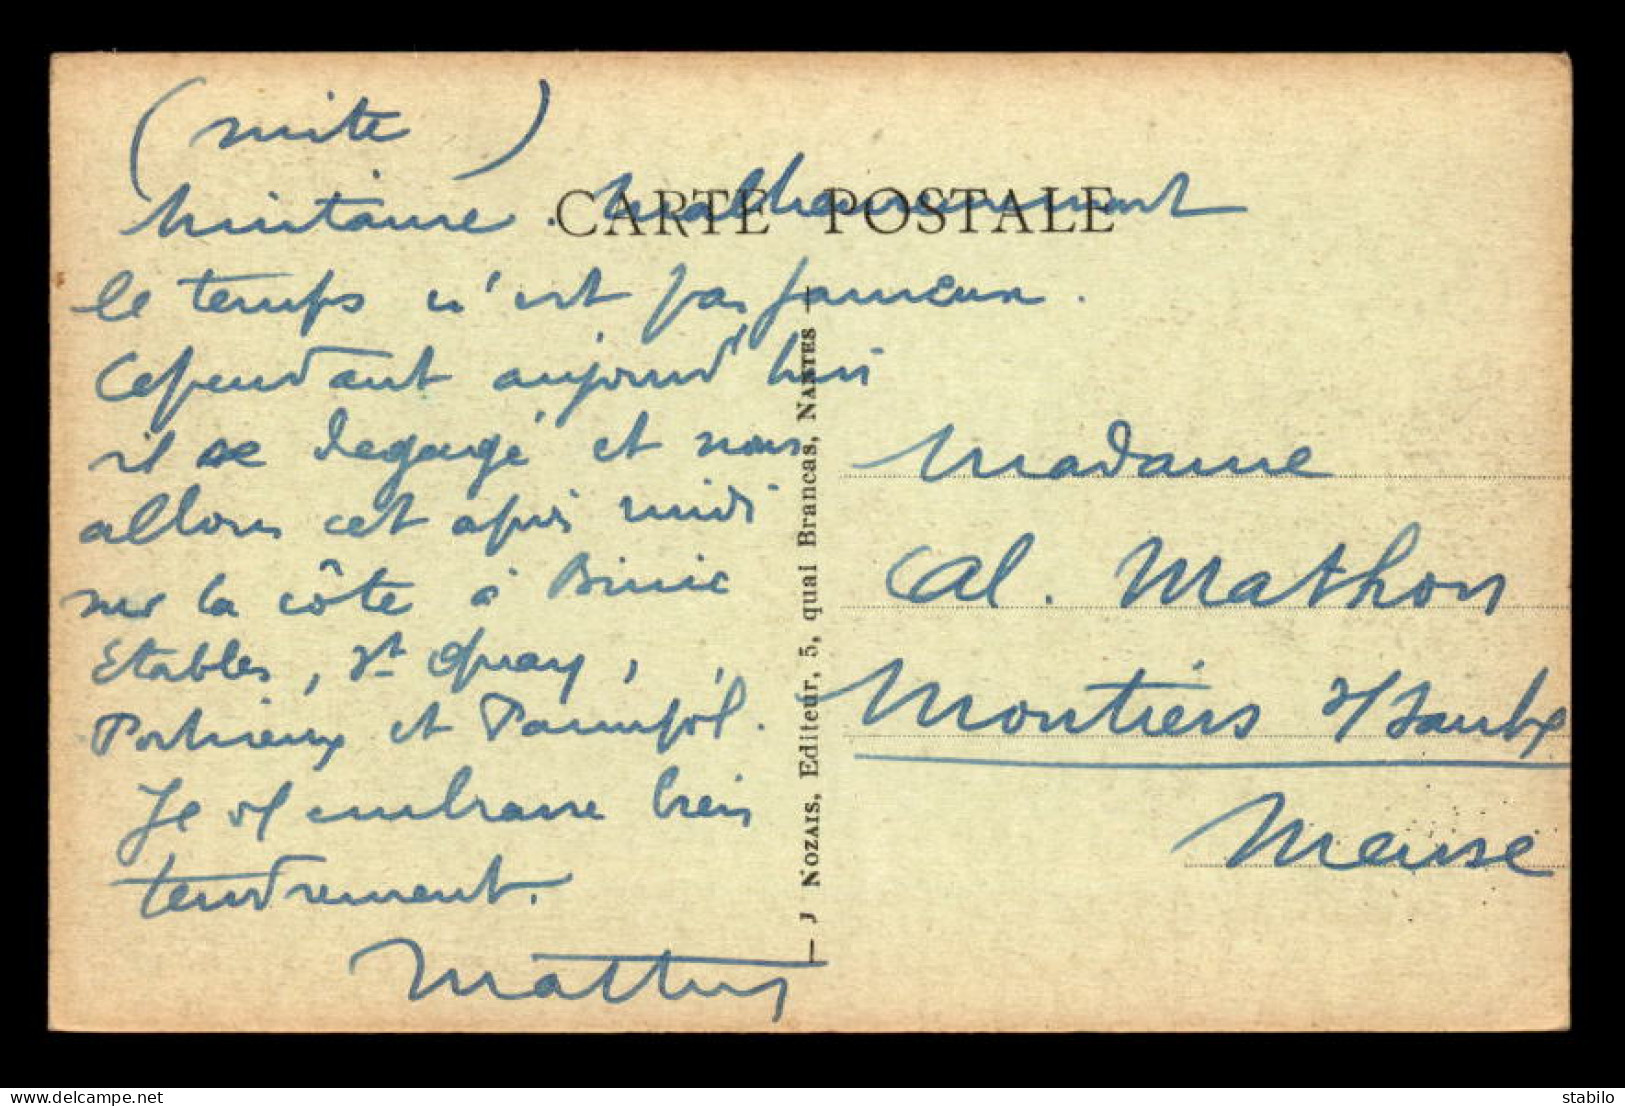 (suite)
. Malheureusement
CARTE POSTALE
le temps n'est pas fameux.
Cependant aujourd'hui
il se degagé et nous
allons cet après midi
sur la côte à Binic
Etables, St Quay,,
Portrieux et Paimpol.
Je vs embrasse bien
tendrement.
Mathon
— J NOZAIS, Editeur, 5, quai Brancas, NANTES —
Madame
Cal. Mathon
Montiers s/Saulx
Meuse
delcampe.net
stabilo